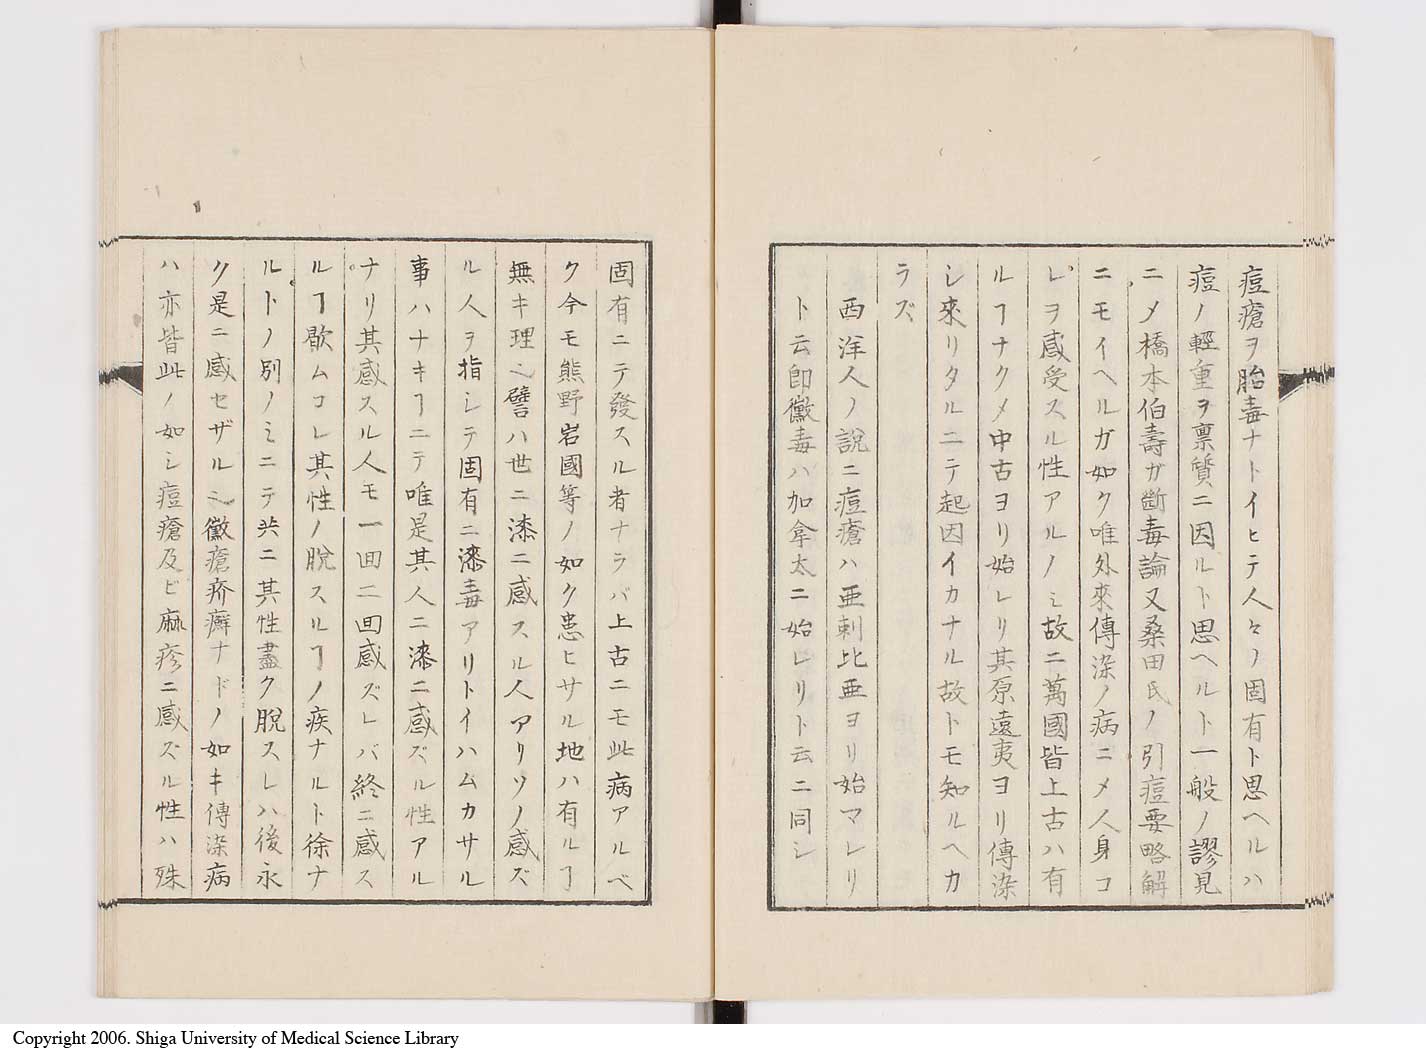 痘瘡ヲ胎毒ナトイヒテ人々ノ固有ト思ヘルハ
痘ノ輕重ヲ禀質ニ因ルト思ヘルト一般ノ謬見
ニメ橋本伯壽ガ斷毒論又桑田氏ノ引痘要略解
ニモイヘルガ如ク唯外來傳染ノ病ニメ人身コ
レヲ感受スル性アルノミ故ニ萬國皆上古ハ有
ルヿナクメ中古ヨリ始レリ其原遠夷ヨリ傳染
シ來リタルニテ起因イカナル故トモ知ルヘカ
ラズ
西洋人ノ說ニ痘瘡ハ亜剌比亜ヨリ始マレリ
ト云即黴毒ハ加拿太ニ始レリト云ニ同シ
固有ニテ發スル者ナラバ上古ニモ此病アルベ
ク今モ熊野岩國等ノ如ク患ヒサル地ハ有ルヿ
無キ理也譬ハ世ニ漆ニ感スル人アリソノ感ズ
ル人ヲ指シテ固有ニ漆毒アリトイハムカサル
事ハナキヿニテ唯是其人ニ漆ニ感ズル性アル
ナリ其感スル人モ一回二回感ズレバ終ニ感ス
ルヿ歇ムコレ其性ノ脫スルヿノ疾ナルト徐ナ
ルトノ別ノミニテ共ニ其性盡ク脫スレハ後永
ク是ニ感セザル也黴瘡疥癬ナドノ如キ傳染病
ハ亦皆此ノ如シ痘瘡及ビ麻疹ニ感ズル性ハ殊
Copyright 2006. Shiga University of Medical Science Library